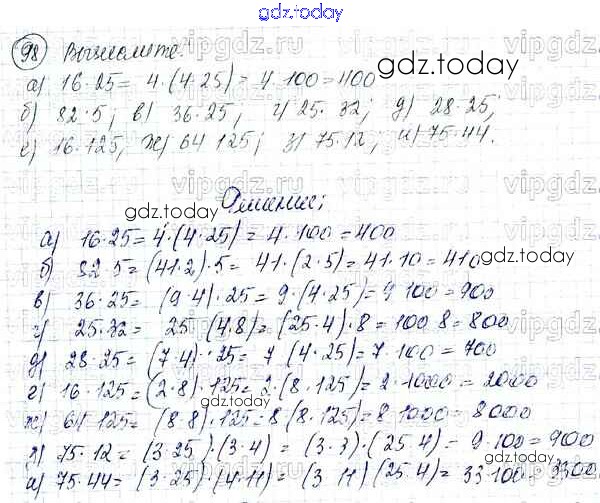 gdz.today
98 Вычислите:
а) 16·25= 4·(4·25)= 4·100=400
gdz.today
б) 82·5; в) 36·25; г) 25·32; д) 28·25;
е) 16·125; ж) 64 125; з) 75·12; и) 75·44.
Решение;
gdz.today
а) 16·25=4·(4·25)=4·100=400
б) 82 5=(41·2)·5= 41·(2·5)=41·10=410
в) 36·25= (9·4)·25= 9·(4·25)=9 100=900
г) 25·32= 25 (4·8)=(25·4)·8=100 8=800
д) 28·25= (7·4)·25= 7 (4·25)=7·100=700
г) 16·125=(2·8)·125=2·(8·125)=2·1000=2000
gdz.today
ж) 64 125= (8·8)·125=8(8·125)=8 1000=8000
з) 75·12= (3·25)·(3·4)= (3·3)·(25 4)= 9·100=900
и) 75·44= (3·25)·(4·11)= (3 11)(25 4)= 33·100=3300
gdz.today